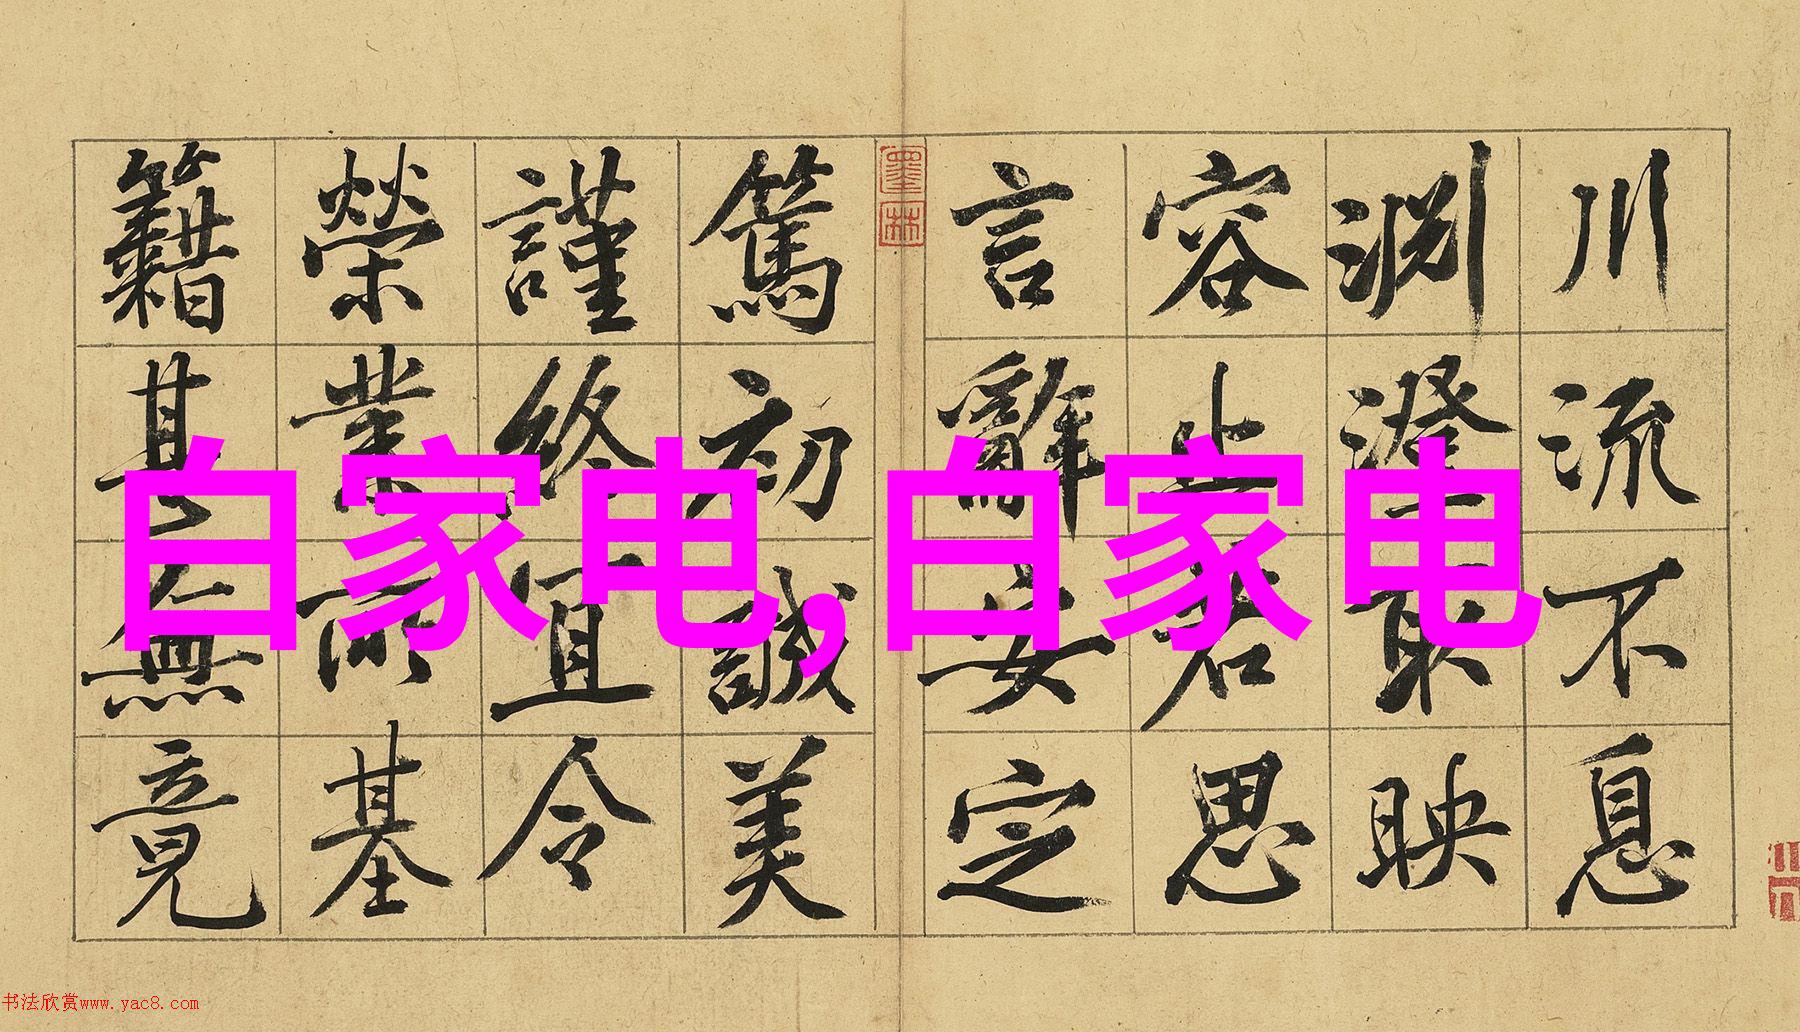 川流不息
淵澄取映
容止若思
言辭安定
墨林
篤初誠美
謹終宜令
榮業所基
籍甚無竟
白家电,白家电
书法欣赏www.yac8.com